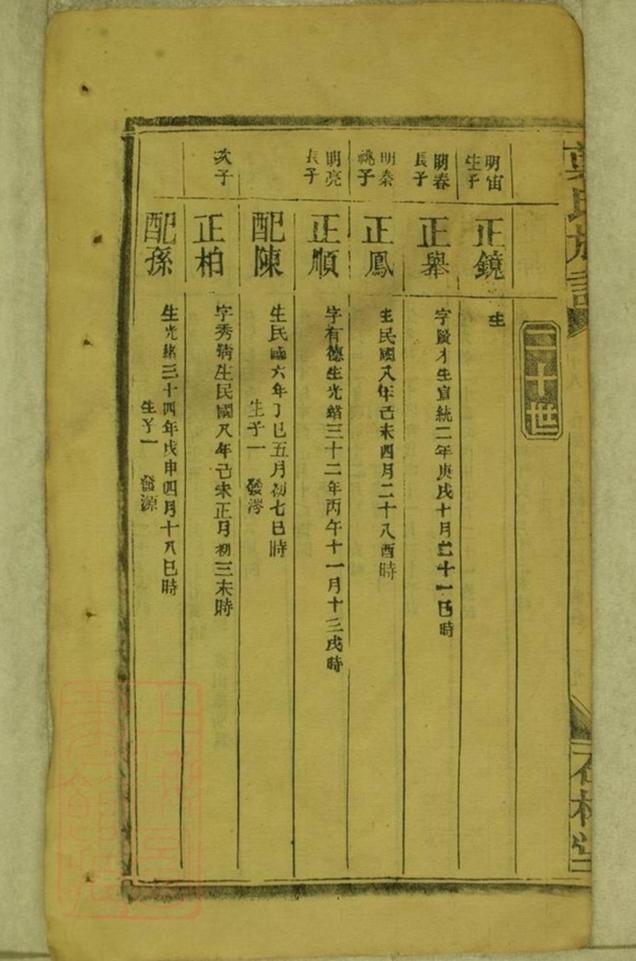 葉氏族譜
石林堂
二十世
明宙
生子
正鏡
生
明春
長子
正舉
字賢才生宣統二年庚戌十月二十一巳時
明泰
祧子
正鳳
生民國八年己未四月二十八酉時
明亮
長子
正順
字有德生光緒三十二年丙午十一月十三戌時
配陳
生民國六年丁巳五月初七巳時
生子一 發澪
次子
正柏
字秀清生民國八年己未正月初三未時
配孫
生光緒三十四年戊申四月十八巳時
生子一 發源